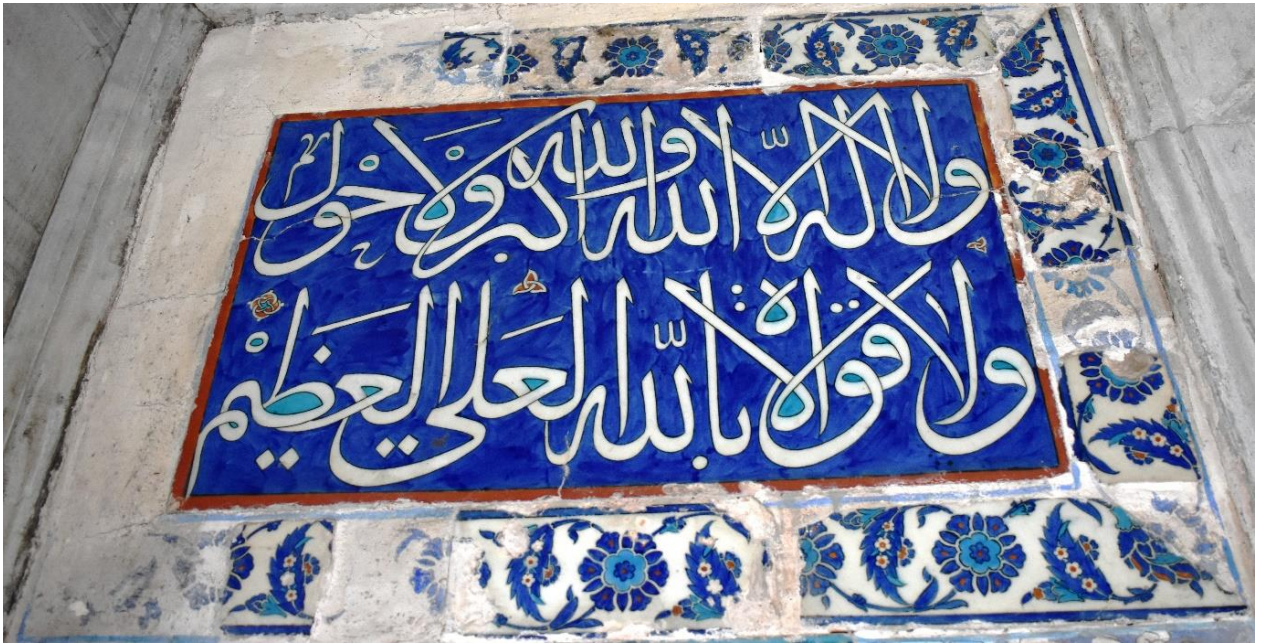 ولا اله الا الله والله اكبر ولا حول
ولا قوة الا بالله العلى العظيم